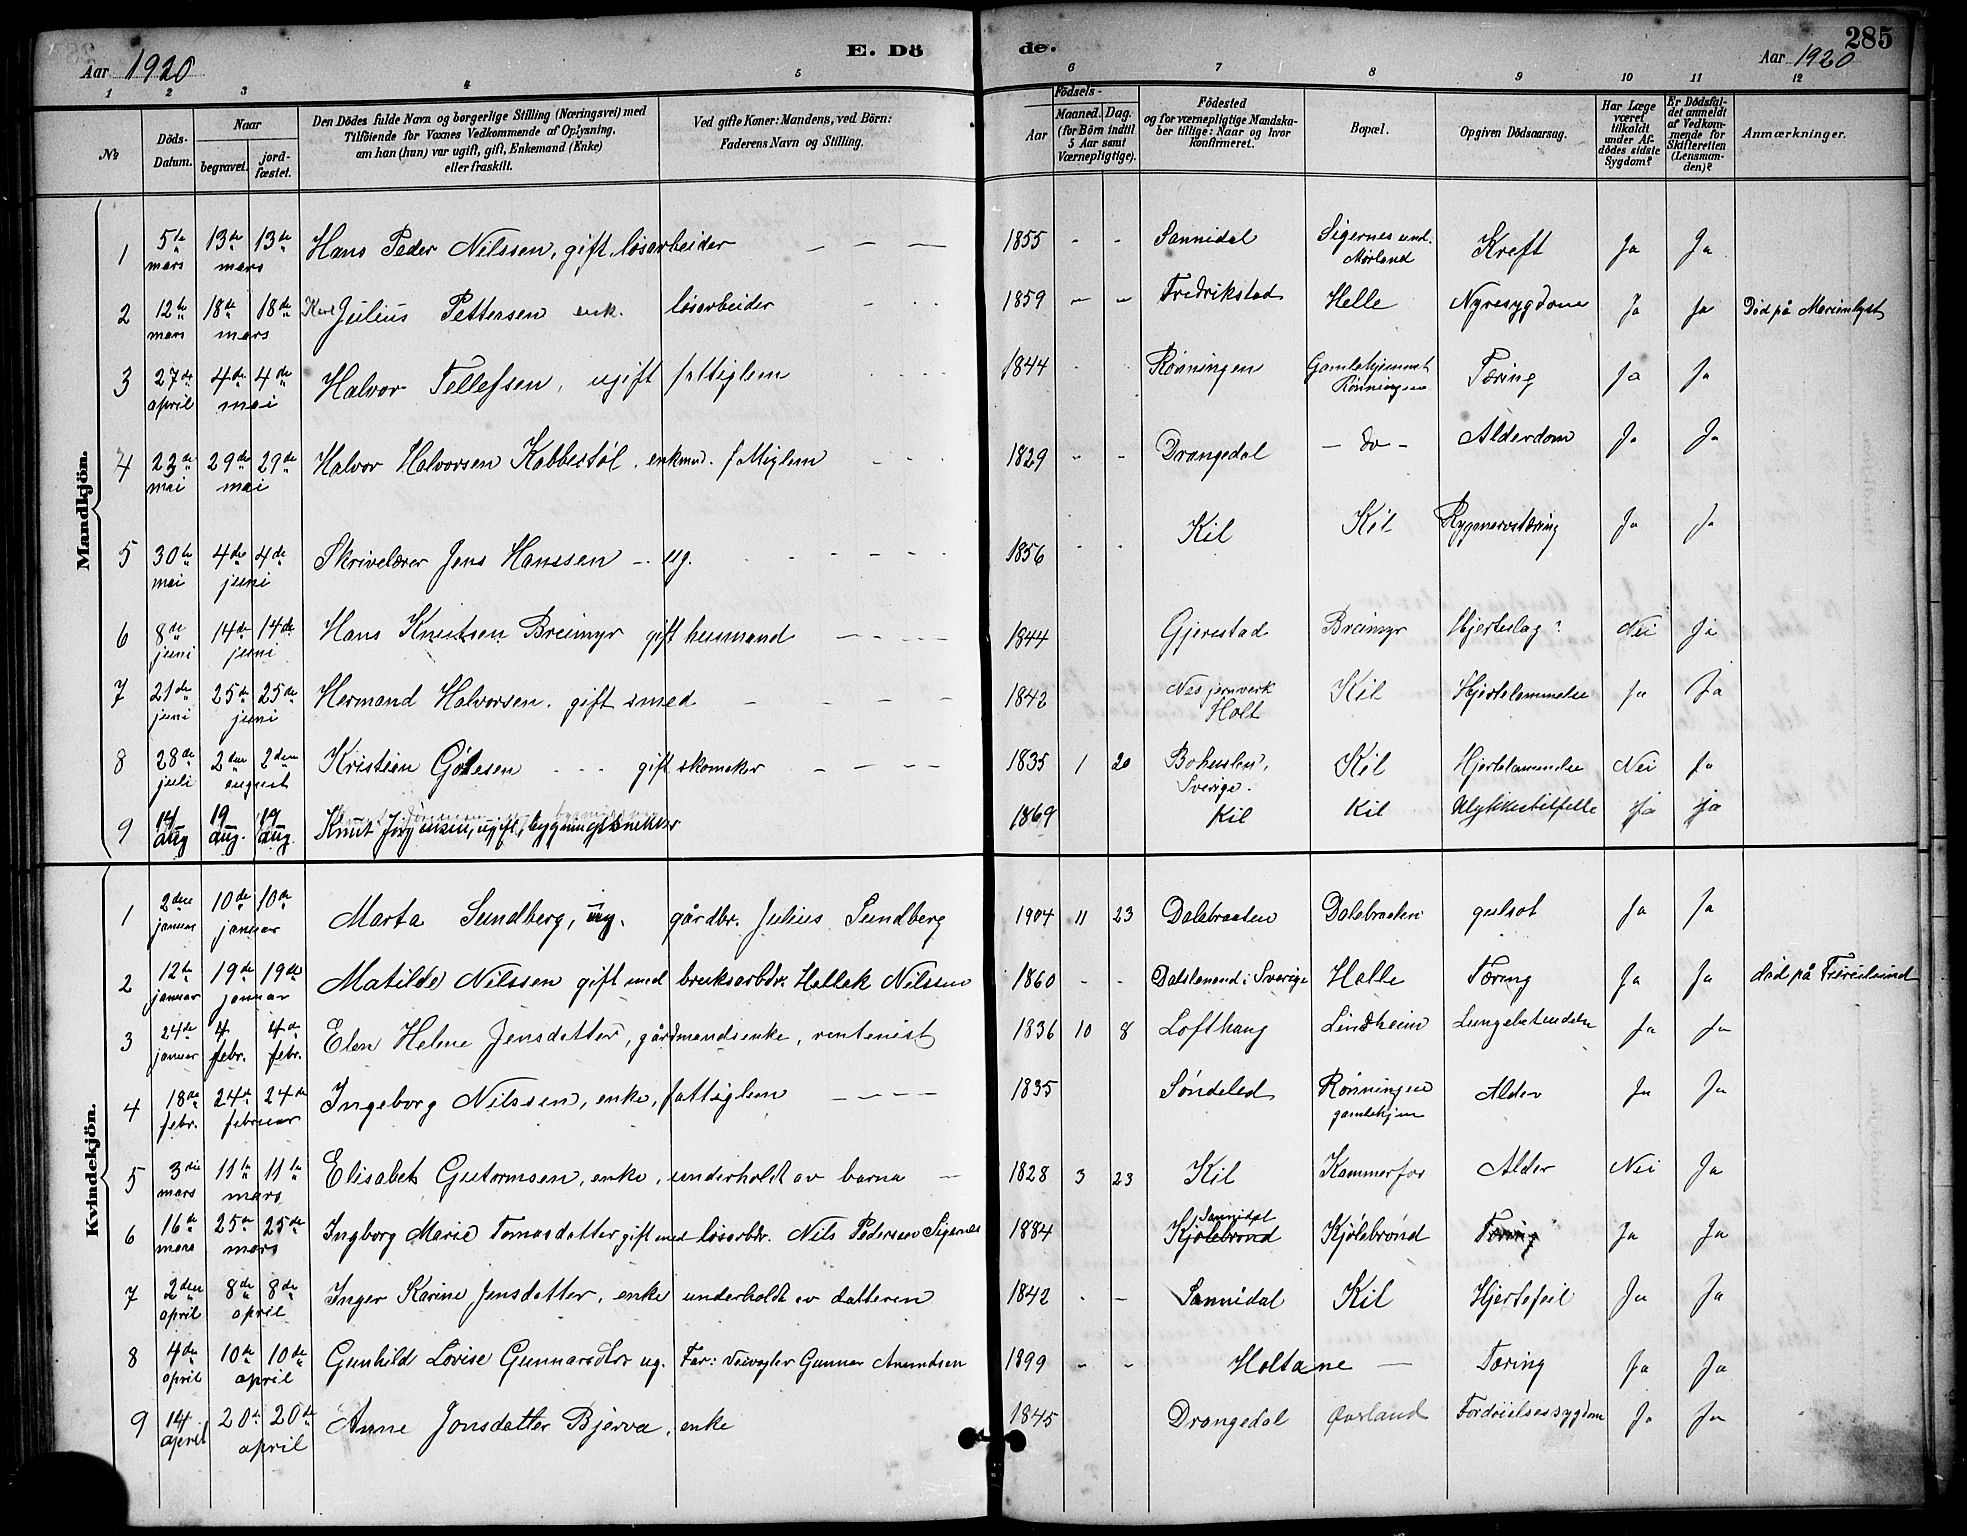 Aar 1920 E. Dö de. Aar 1920 285
1 2 3 4 5 6 7 8 9 10 11 12
No
Döds-Datum.
Naar
begravet. jordfæstet.
Den Dödes fulde Navn og borgerlige Stilling (Næringsvei) med
Tilföiende for Voxnes Vedkommende af Oplysning,
om han (hun) var ugift, gift, Enkemand (Enke)
eller fraskilt.
Ved gifte Koner: Mandens, ved Börn:
Faderens Navn og Stilling.
Födsels-
Aar Maaned. Dag.
(for Börn indtil
5 Aar samt
Værnepligtige).
Födested
og for værnepligtige Mandska-
ber tillige: Naar og hvor
konfirmeret.
Bopæl.
Opgiven Dödsaarsag.
Har Læge
været
tilkaldt
under Af-
dödes sidste
Sygdom?
Er Dödsfal-
det anmeldt
af Vedkom-
mende for
Skifteretten
(Lensman-
den)?
Anmærkninger.
Mandkjön.
1 5te mars 13de mars 13de Hans Peder Nilssen, gift, løsarbeider – – – 1855 - - Sannidal Sigernes und. Mørland Kreft Ja Ja
2 12te mars 18de mars 18de Karl Julius Pettersen enk. løsarbeider 1859 - - Fredrikstad Helle Nyresygdom Ja Ja Død på Marienlyst
3 27de april 4de mai 4de Halvor Tellefsen, ugift fattiglem 1844 Rønningen Gamlehjemmet Rønningen Tæring Ja Ja
4 23de mai 29de mai 29de Halvor Halvorsen Kabbestøl, enkmd. fattiglem 1829 - - Drangedal – do – Alderdom Ja Ja
5 30te mai 4de juni 4de Skrivelærer Jens Hanssen – ug. 1856 Kil Kil Rygmarvstæring Ja Ja
6 8de juni 14de juni 14de Hans Knutsen Breimyr gift husmand 1844 Gjerestad Breimyr Hjerteslag? Nei Ja
7 21de juni 25de juni 25de Hermand Halvorsen. gift smed 1842 Nes jernverk Holt Kil Hjertelammelse Ja Ja
8 28de juli 2den august 2den Kristian Gøtesen gift skomaker 1835 1 20 Bohuslen, Sverige. Kil Hjertelammelse Nei Ja
9 14 aug 19 aug. 19 aug. Knut Jørgensen, ugift, bygningssnekker 1869 Kil Kil Ulykkestilfelle Ja Ja
Kvindekjön.
1 2den januar 10de januar 10de Marta Sundberg, ug. gårdbr. Julius Sundberg 1904 11 23 Dalebraaten Dalebraaten gulsot Ja Ja
2 12te januar 19de januar 19de Matilde Nilssen gift med bruksarbdr. Hellek Nilssen 1860 - - Dalslanand i Sverige Helle Tæring Ja Ja død på
3 24de januar 4. febr. 4de febr. Elen Helene Jensdatter, gårdmandsenke, rentenist 1836 10 8 Lofthaug Lindheim Lungebetendelse Ja Ja
4 18de febr. 24de februar 24de Ingeborg Nilssen, enke, fattiglem 1835 Søndeled Rønningen gamlehjem Alder Ja Ja
5 3die mars 11te mars 11te Elisabet Gutormsen, enke, underholdt av barna – 1828 3 23 Kil Kammerfos Alder Nei Ja
6 16de mars 25de mars 25de Ingborg Marie Tomasdatter gift med løsarbdr. Nils Pedersen Sigernes 1884 Sannidal Kjølebrønd Kjølebrønd Tæring Ja Ja
7 2den april 8de april 8de Inger Karine Jensdatter, enke underholdt av datteren 1842 - - Sannidal Kil Hjertefeil Ja Ja
8 4de april 10de april 10de Gunhild Lovise Gunnarsdtr ug. Far: Veivogter Gunnar Amundsen 1899 - - Holtane – Tæring Ja Ja
9 14. april 20de april 20de Anne Jonsdatter Bjerva, enke 1845 Drangedal Øvrland Fordøielsessygdom Ja Ja